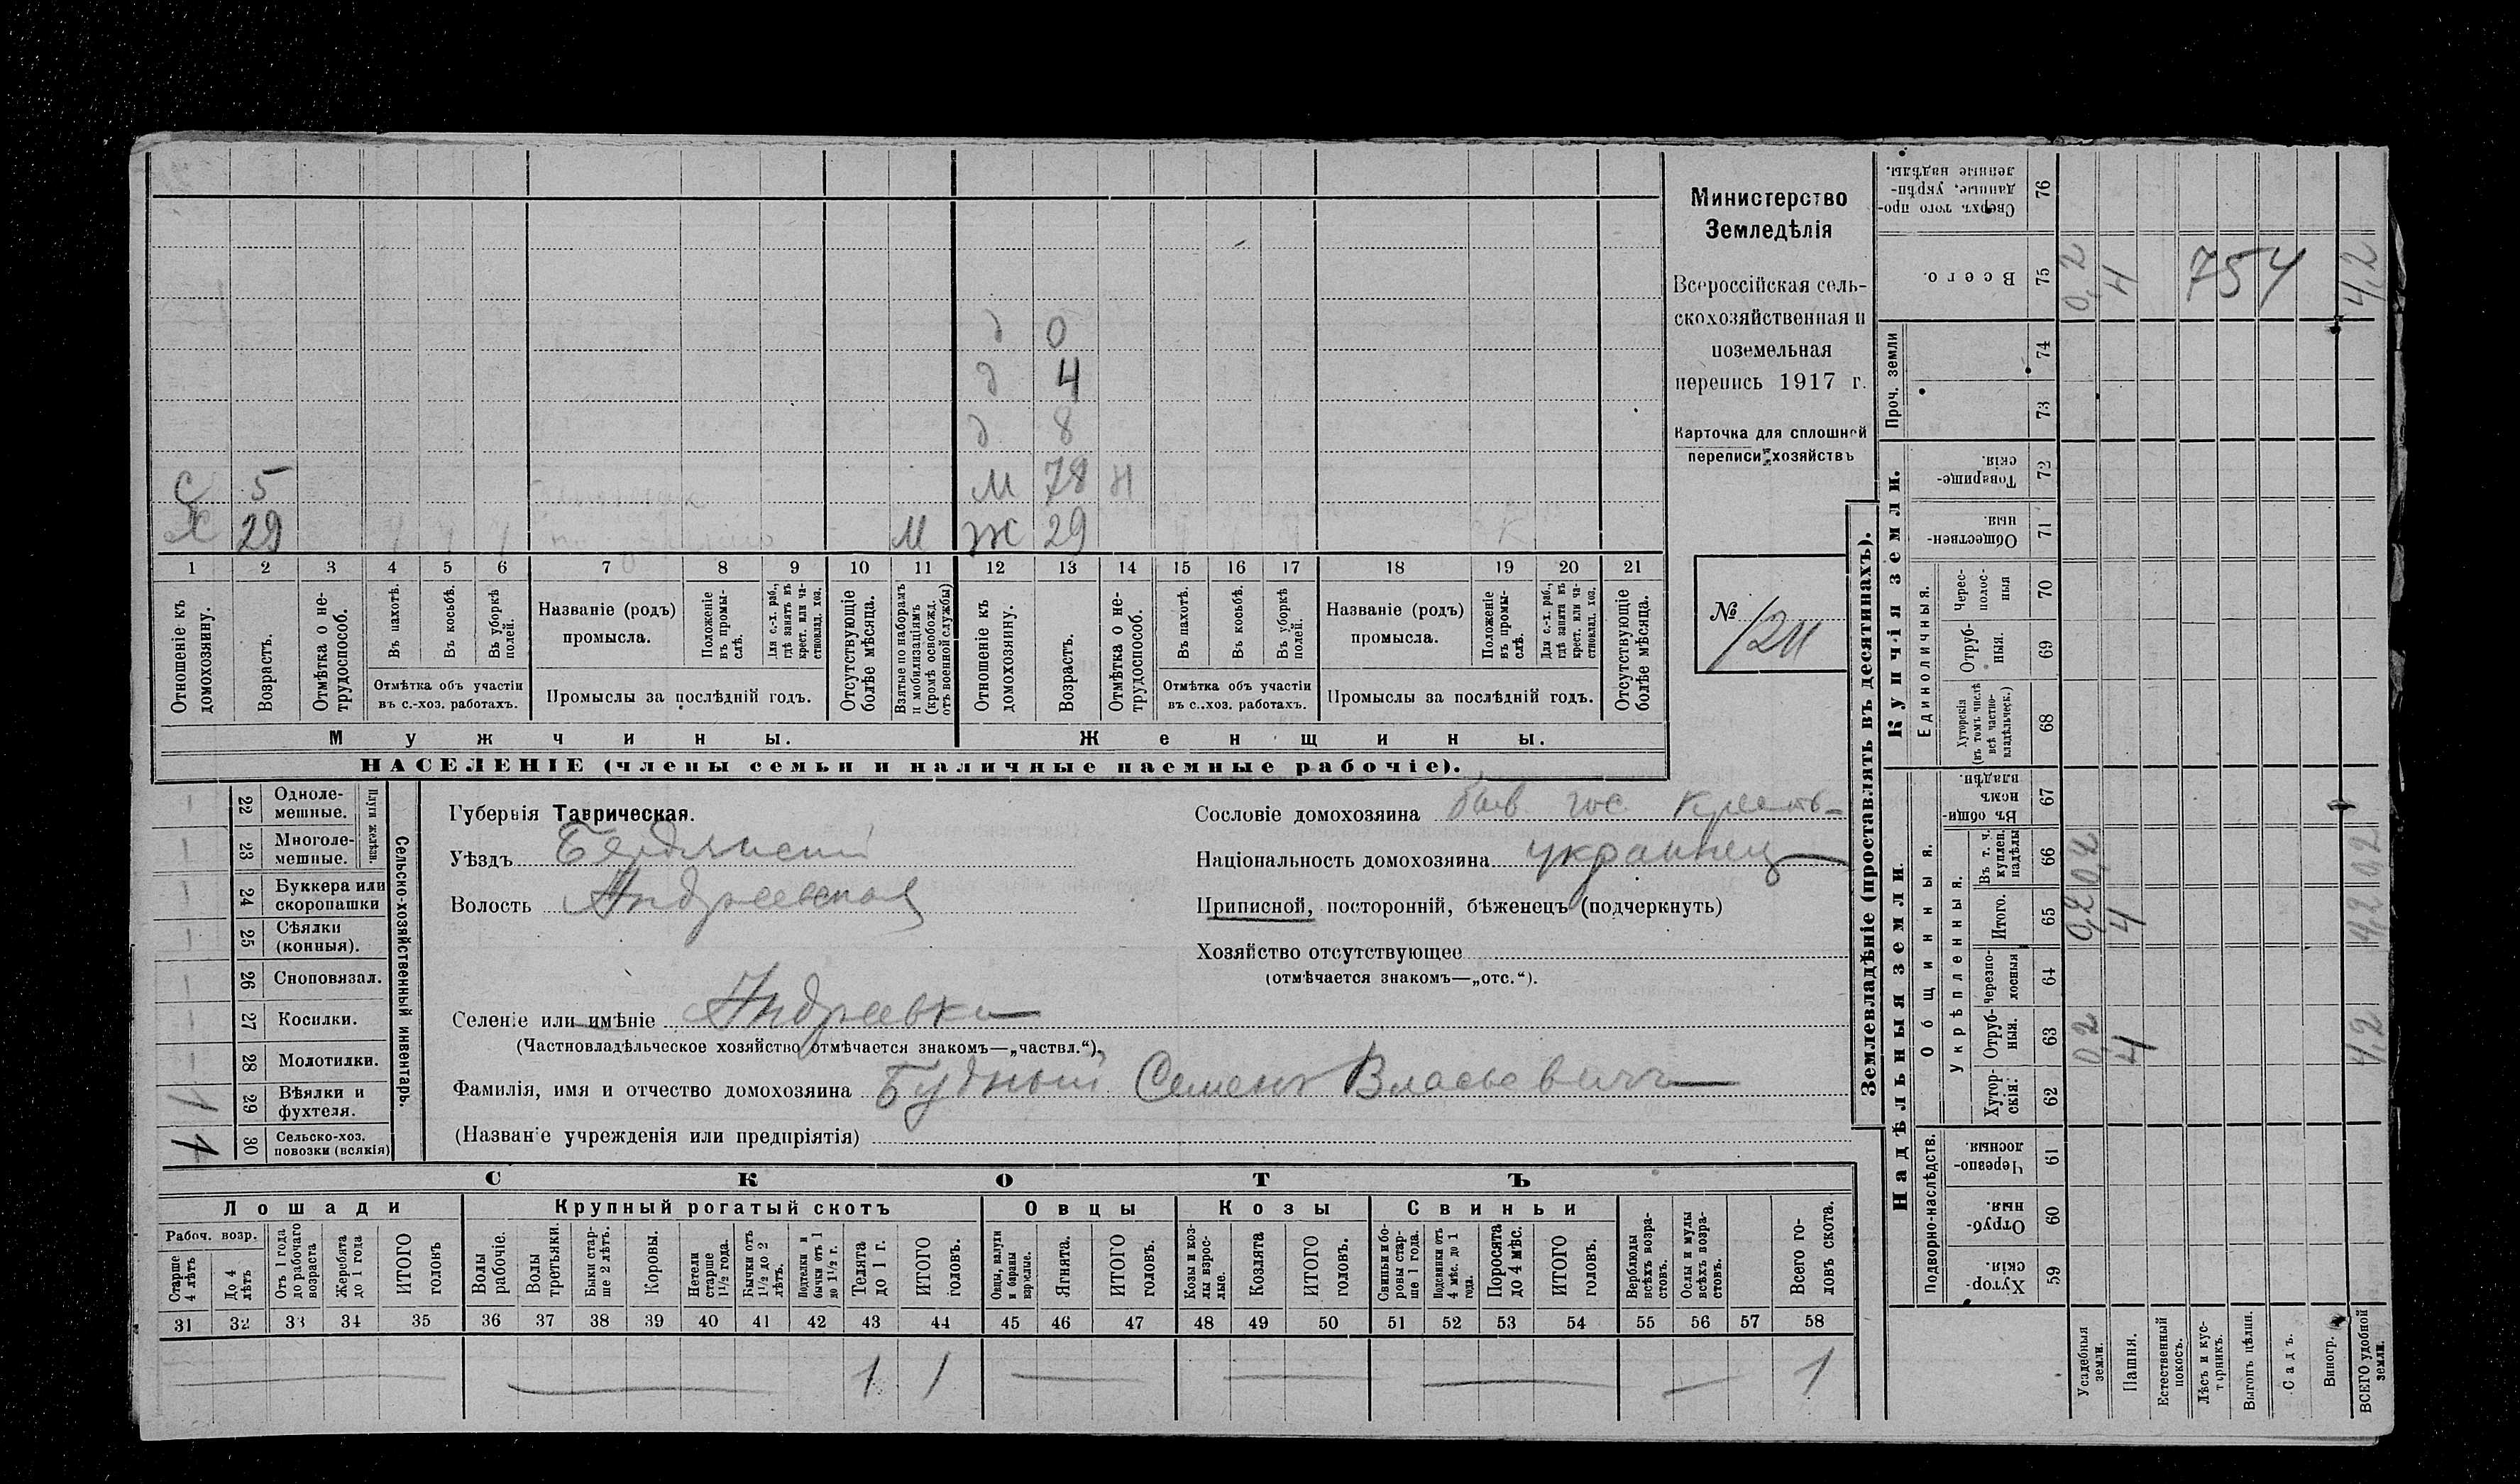 Министерство
Земледѣлія
Всероссійская сель-
скохозяйственная и
поземельная
перепись 1917 г.
Карточка для сплошной
переписи хозяйствъ
№ 
д 0
д 4
д 8
С 5 М 78 Н
Х 29 М Ж 29
1 2 3 4 5 6 7 8 9 10 11 12 13 14 15 16 17 18 19 20 21
Отношеніе къ домохозяину.
Возрастъ.
Отмѣтка о не-трудоспособ.
Въ пахотѣ.
Въ косьбѣ.
Въ уборкѣ полей.
Отмѣтка объ участіи
въ с.-хоз. работахъ.
Названіе (родъ)
промысла.
Положеніе въ промы-слѣ.
Для с.-х. раб., гдѣ занятъ въ крест. или ча-стновлад. хоз.
Промыслы за послѣдній годъ.
Отсутствующіе болѣе мѣсяца.
Взятые по наборамъ и мобилизаціямъ (кромѣ освобожд. отъ военной службы)
Отношеніе къ домохозяину.
Возрастъ.
Отмѣтка о не-трудоспособ.
Въ пахотѣ.
Въ косьбѣ.
Въ уборкѣ полей.
Отмѣтка объ участіи
въ с..хоз. работахъ.
Названіе (родъ)
промысла.
Положеніе въ промы-слѣ.
Для с.-х. раб., гдѣ занята въ крест. или ча-стновлад. хоз.
Промыслы за послѣдній годъ.
Отсутствующіе болѣе мѣсяца.
Мужчины. Женщины.
НАСЕЛЕНІЕ (члены семьи и наличные наемные рабочіе).
Сельско-хозяйственный инвентарь.
Плуги желѣзн.
22 Одноле-мешные.
23 Многоле-мешные.
24 Буккера или скоропашки
25 Сѣялки (конныя).
26 Сноповязал.
27 Косилки.
28 Молотилки.
29 Вѣялки и фухтеля.
30 Сельско-хоз. повозки (всякія) 1
Губернія Таврическая.
Уѣздъ Бердянскій
Волость Андреевская
Селеніе или имѣніе Андреевка
(Частновладѣльческое хозяйство отмѣчается знакомъ—„частвл.“).
Фамилія, имя и отчество домохозяина Будный Семенъ Власьевичъ
(Названіе учрежденія или предпріятія)
Сословіе домохозяина быв. гос. крест-
Національность домохозяина украинец
Приписной, посторонній, бѣженецъ (подчеркнуть)
Хозяйство отсутствующее
(отмѣчается знакомъ—„отс.“).
СКОТЪ
Лошади Крупный рогатый скотъ Овцы Козы Свиньи
Рабоч. возр.
Старше 4 лѣтъ
До 4 лѣтъ
Отъ 1 года до рабочаго возраста
Жеребята до 1 года
ИТОГО головъ
Волы рабочіе.
Волы третьяки.
Быки стар-ше 2 лѣтъ.
Коровы.
Нетели старше 1½ года.
Бычки отъ 1½ до 2 лѣтъ.
Подтелки и бычки отъ 1 до 1½ г.
Телята до 1 г.
ИТОГО головъ.
Овцы, валухи и бараны взрослые.
Ягнята.
ИТОГО головъ.
Козы и коз-лы взрос-лые.
Козлята
ИТОГО головъ.
Свиньи и бо-ровы стар-ше 1 года.
Подсвинки отъ 4 мѣс. до 1 года.
Поросята до 4 мѣс.
ИТОГО головъ.
Верблюды всѣхъ возра-стовъ.
Ослы и мулы всѣхъ возра-стовъ.
Всего го-ловъ скота.
31 32 33 34 35 36 37 38 39 40 41 42 43 44 45 46 47 48 49 50 51 52 53 54 55 56 57 58
1 1 1
Землевладѣніе (проставлять въ десятинахъ).
Надѣльныя земли.
Купчія земли.
Проч. земли
Сверхъ того про-данные, укрѣп-ленные надѣлы. 76
Всего. 75 0,2 4 754 4,2
74
73
Товарище-скія. 72
Обществен-ныя. 71
Единоличныя.
Черес-полос-ныя 70
Отруб-ныя. 69
Хуторскія (въ томъ числѣ всѣ частно-владѣльческ.) 68
Общинныя.
Въ общи-номъ владѣн. 67
Укрѣпленныя.
Въ т. ч. куплен. надѣлы 66
Итого. 65 0,2 4 4,2
Черезпо-лосныя 64
Отруб-ныя. 63 0,2 4 4,2
Хутор-скія. 62
Подворно-наслѣдств.
Черезпо-лосныя. 61
Отруб-ныя. 60
Хутор-скія. 59
Усадебныя земли.
Пашня.
Естественный покосъ.
Лѣсъ и кус-тарникъ.
Выгонъ цѣлин.
Садъ.
Виногр.
ВСЕГО удобной земли.